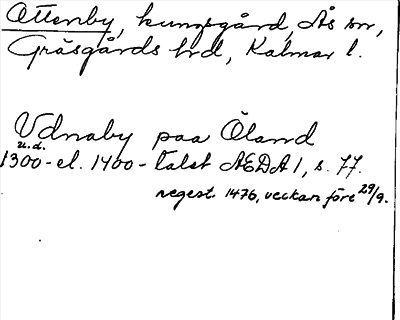 Ottenby, kungsgård, Ås sn,
Gräsgårds hd, Kalmar l.
Vdnaby paa Öland
u.d.
1300- el. 1400-talet AEDA 1, s. 77.
regest. 1476, veckan före 29/9.